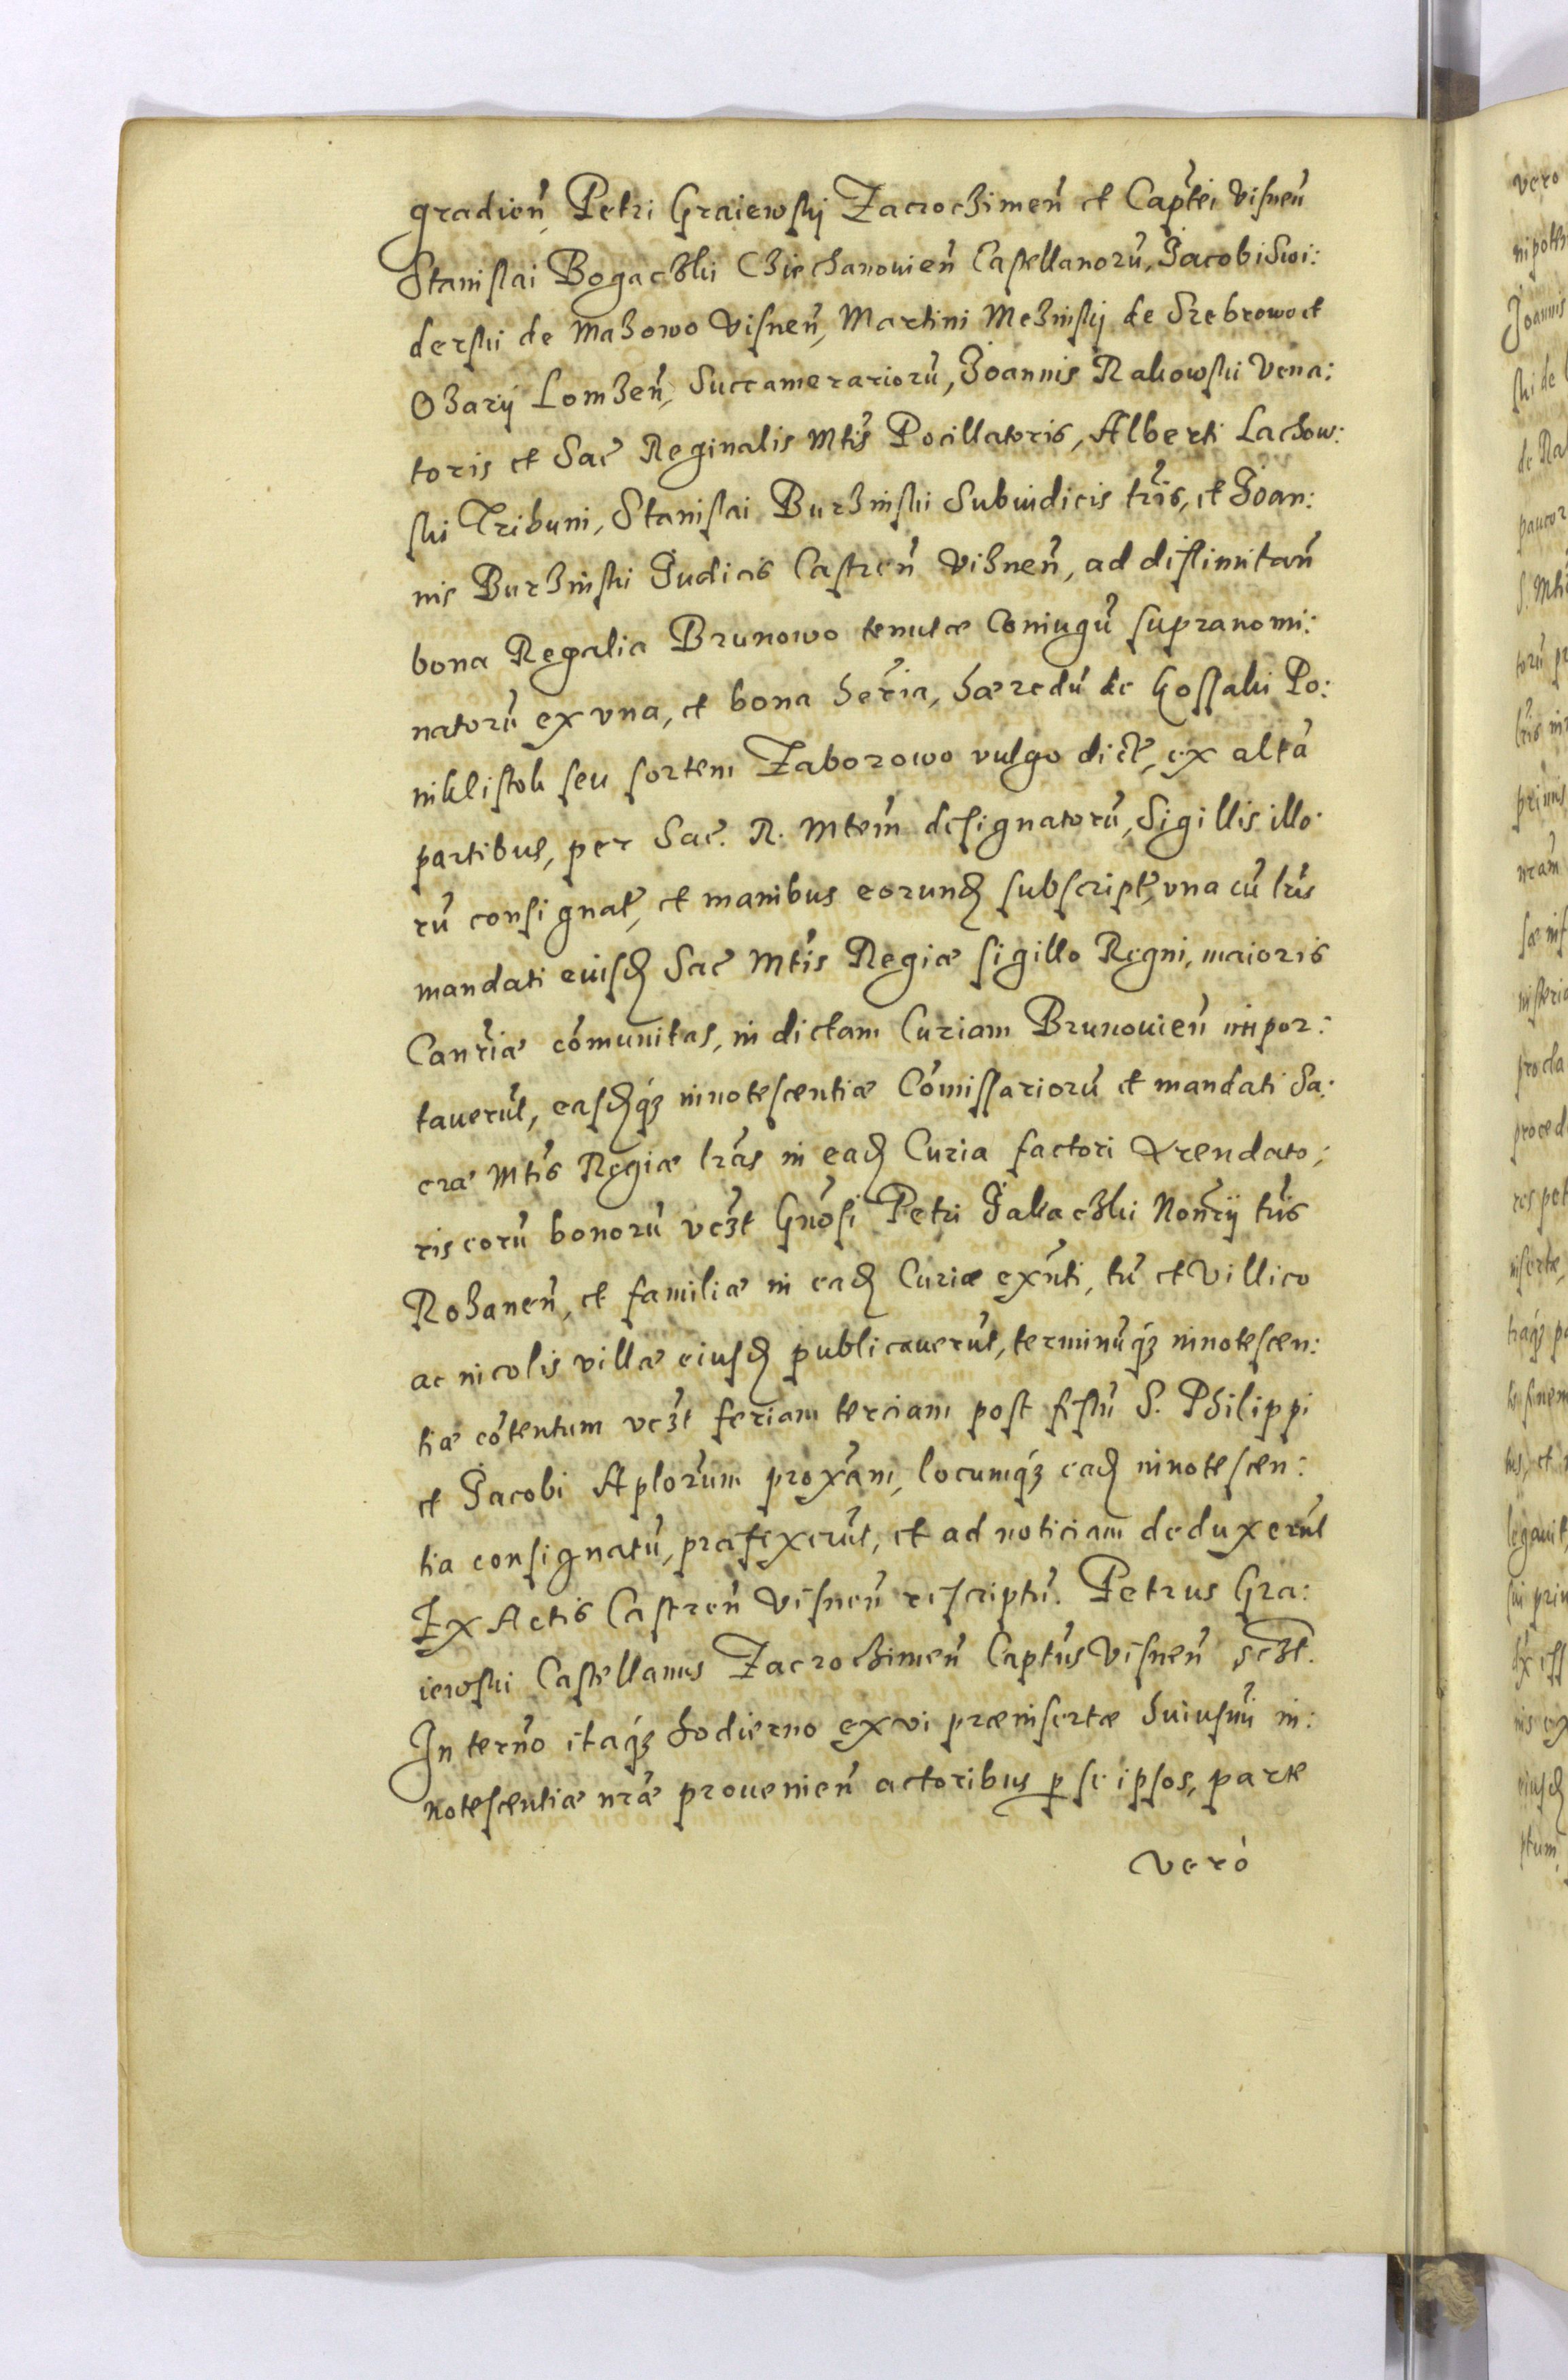 gradieñ, Petri Graiewskij Zacrochimeñ et Captei Visneñ
Stanislai Bogaczki Cziechanouieñ Castellanorũ, Jacobi Swi:
derski de Mazowo Visneñ, Martini Mezinskij de Srebrowo et
Ozarÿ Lomzeñ, Succamerariorũ, Joannis Rakowski Vena:
toris et Sac̃ Reginalis Mtis̃ Pocillatoris, Alberti Lachow:
ski Tribuni, Stanislai Burzinski Subiudicis trĩs, et Joan:
nis Burzinski Judicis Castreñ Vizneñ, ad dislimitañ
bona Regalia Brunowo tenutæ Coniugũ supranomi:
natorũ ex vna, et bona her̃ia, hæredũ de Kossaki Po:
niklistok seu sortem Zaborowo vulgo dict̃, ex altã
partibus, per Sac̃. R. Mtem̃ designatorũ, Sigillis illo
rũ consignat̃, et manibus eorund̃ subscript̃, vna cũ lr̃is
mandati eiusd̃ Sac̃ Mtĩs Regiæ sigillo Regni, maioris
Canr̃iæ cõmunitas, in dictam Curiam Brunouieñ impor:
tauerũt, easd̃q́ʒ innotescentiæ Cõmissariorũ et mandati Sa:
cræ Mtĩs Regiæ lr̃as in ead̃ Curia factori Arendato:
ris eorũ bonorũ vcʒt̃ Gnõsi Petri Jakaczki Nonr̃ij tr̃is
Rozaneñ, et familiæ in ead̃ Curiæ exñti, tũ et Villico
ac incolis villæ eiusd̃ publicauerũt, terminũq́ʒ innotescen:
tiæ cõtentum vcʒt̃ feriam terciam post festũ S. Philippi
et Jacobi Aplorũm proxãm, locumq́ʒ ead̃ innotescen:
tia consignatũ, præfixerũt, et ad noticiam deduxerũt
Ex Actis Castreñ Visneñ rescriptũ. Petrus Gra:
iewski Castellanus Zacrochimeñ Captũs Visneñ scʒt̃.
In terñno itaq́ʒ hodierno ex vi præinsertæ huiusm̃i in:
notescentiæ nr̃æ prouenieñ actoribus ꝑ se ipsos, parte
verò